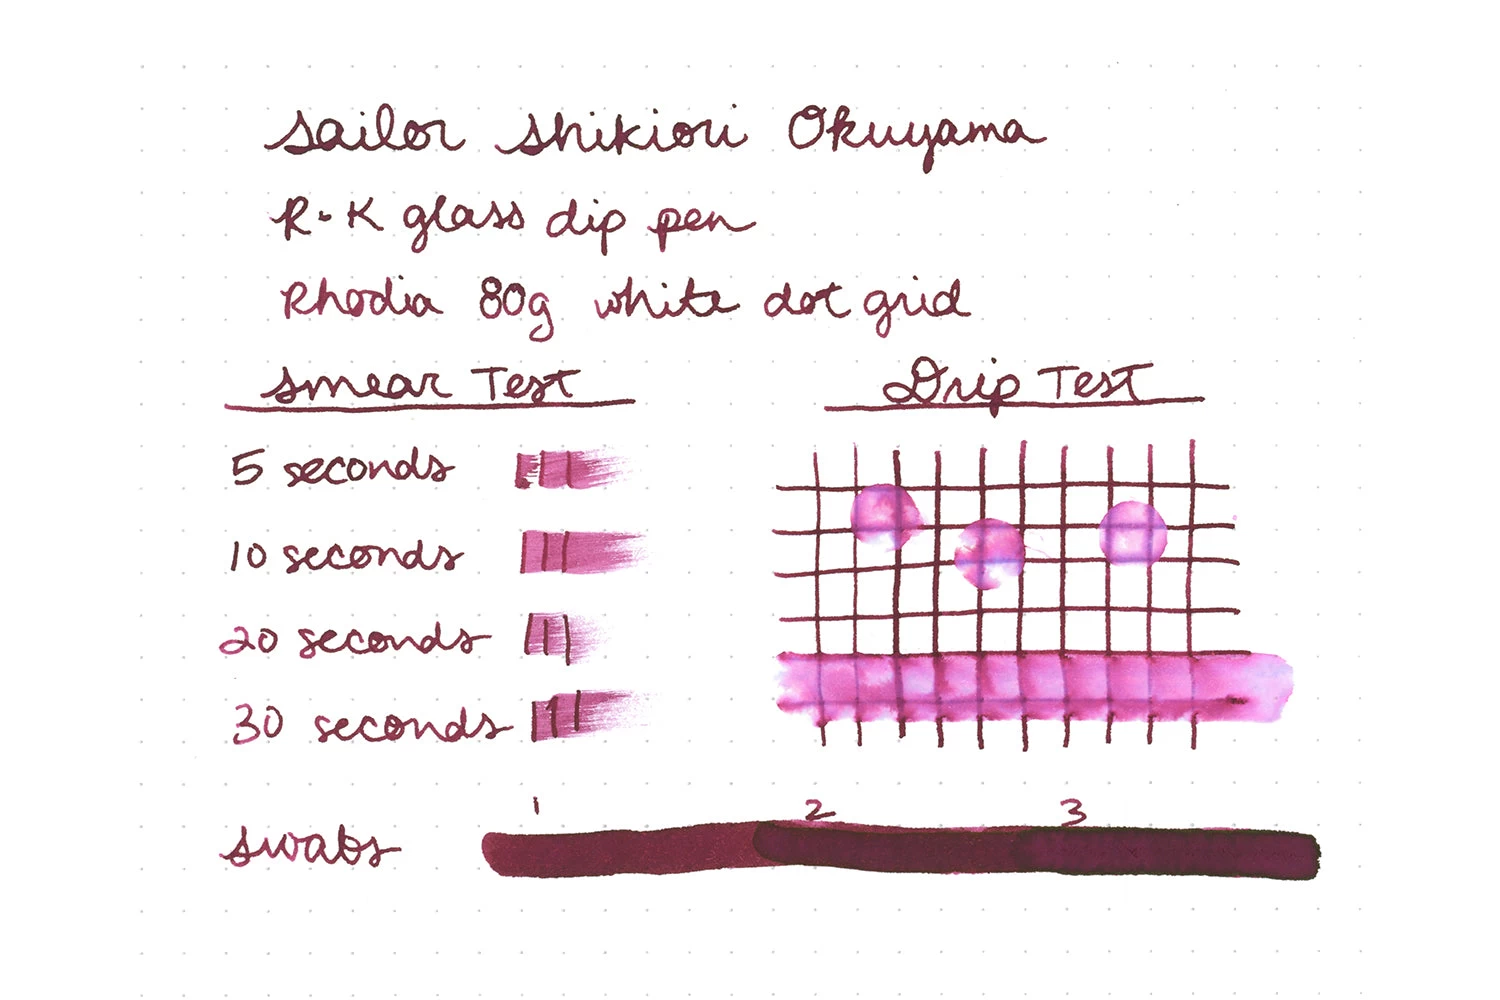 Sailor Shikiori Okuyama
R·K glass dip pen
Rhodia 80g white dot grid
Smear Test
5 seconds
10 seconds
20 seconds
30 seconds
Drip Test
Swabs
1 2 3